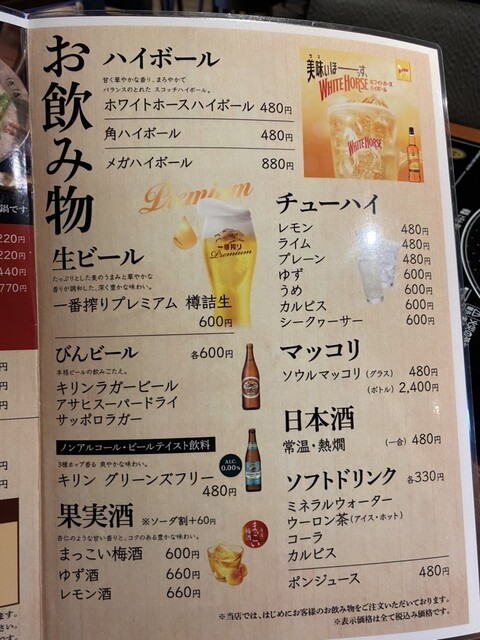 お飲み物
ハイボール
甘く華やかな香り、まろやかで
バランスのとれた スコッチハイボール。
ホワイトホースハイボール 480円
角ハイボール 480円
メガハイボール 880円
美味いほーーーす、
WHITE HORSE
WHITE HORSE
Premium
一番搾り
Premium
生ビール
たっぷりとした麦のうまみと華やかな
香りが調和した、深く豊かな味わい。
一番搾りプレミアム 樽詰生
600円
びんビール 各600円
本格ビールの飲みごたえ。
キリンラガービール
アサヒスーパードライ
サッポロラガー
ノンアルコール・ビールテイスト飲料
ALC.
0.00%
3種ホップ香る 爽やかな味わい。
キリン グリーンズフリー
480円
果実酒 ※ソーダ割+60円
杏仁のような甘い香りと、コクのある豊かな味わい。
まっこい梅酒 600円
ゆず酒 660円
レモン酒 660円
まっこい
梅酒
チューハイ
レモン 480円
ライム 480円
プレーン 480円
ゆず 600円
うめ 600円
カルピス 600円
シークヮーサー 600円
マッコリ
ソウルマッコリ (グラス) 480円
(ボトル) 2,400円
日本酒
常温・熱燗 (一合) 480円
ソフトドリンク 各330円
ミネラルウォーター
ウーロン茶(アイス・ホット)
コーラ
カルピス
ポンジュース 480円
※当店では、はじめにお客様のお飲み物をご注文いただいております。
※表示価格は全て税込み価格です。
鍋です
220円
220円
440円
770円
円
円
円
円
円
ます。
さい。
です。